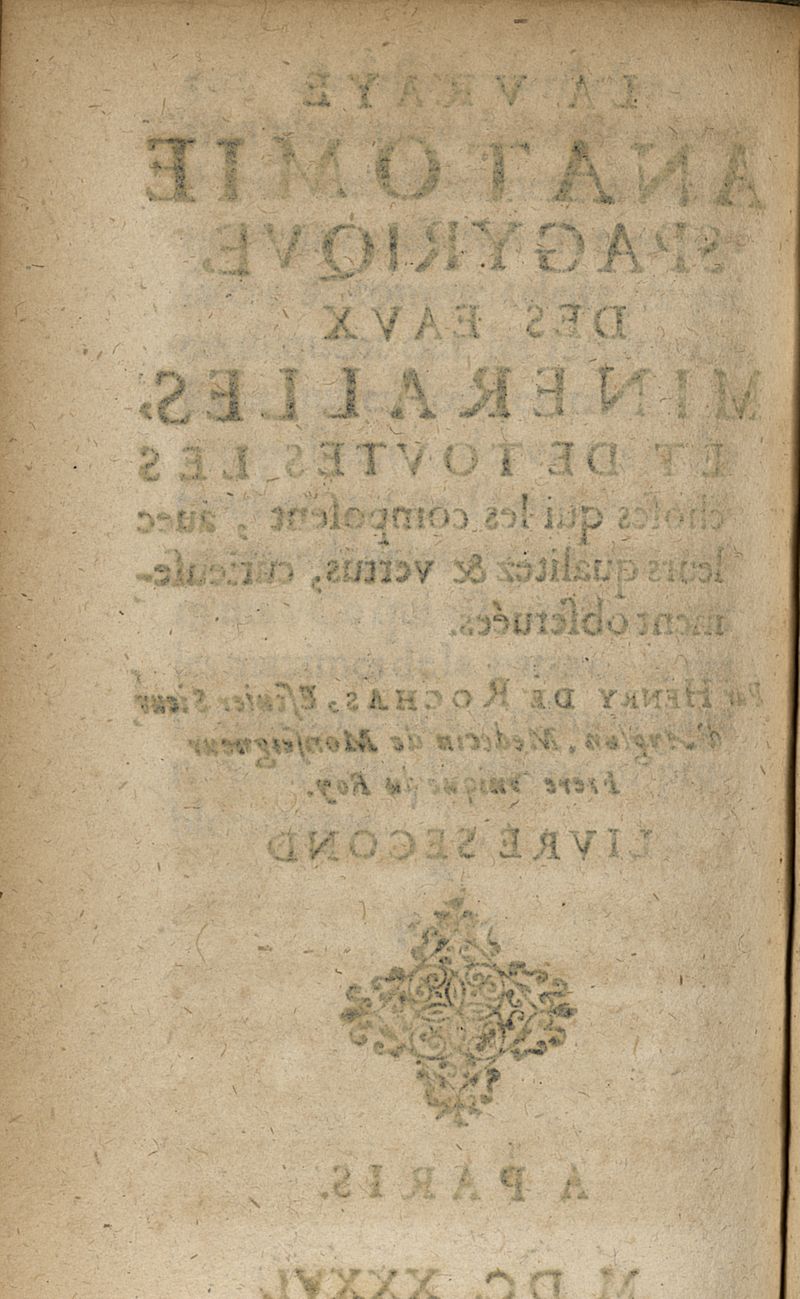 LA VRAYE
ANATOMIE
SPAGYRIQVE
DES EAVX
MINERALLES,
ET DE TOVTES LES
choses qui les composent, auec
leurs qualitez & vertus, curieuse-
ment obseruées.
Par HENRY DE ROCHAS, Escuier, Sieur
d'Ayglun, Medecin de Monseigneur
Frere vnique du Roy.
LIVRE SECOND
A PARIS.
M DC. XXXVI.